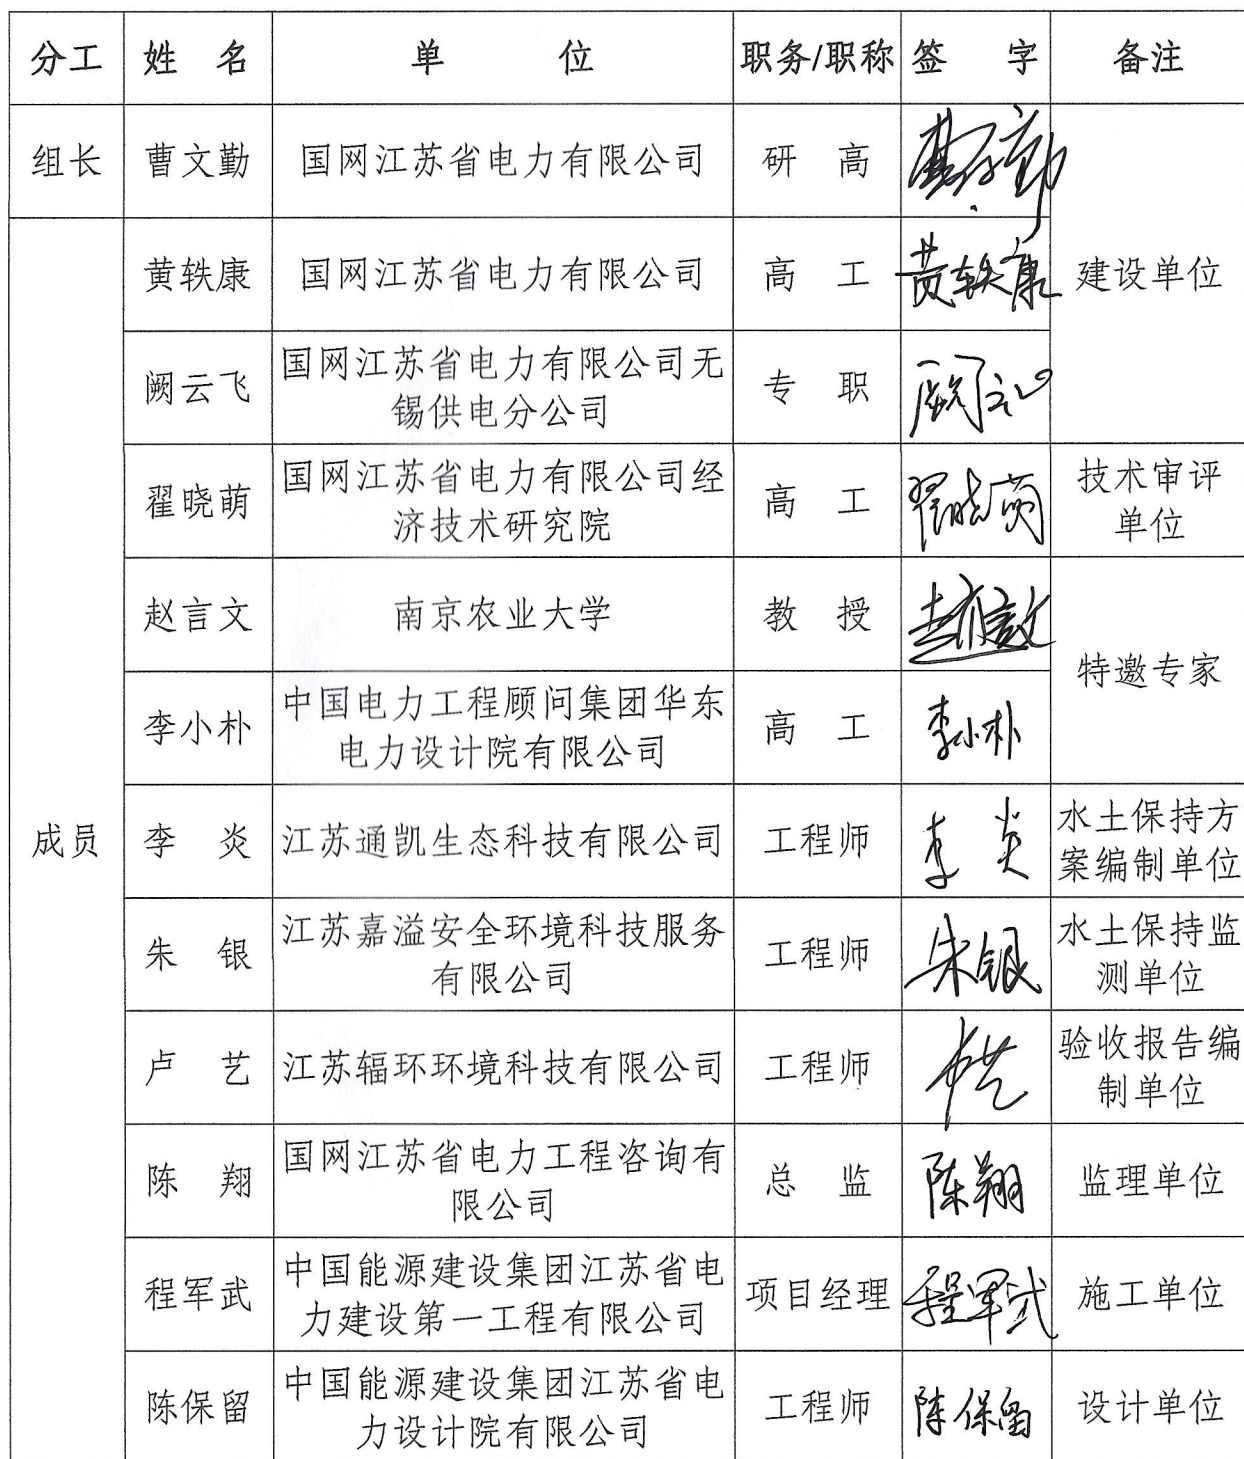 分工 姓 名 单 位 职务/职称 签 字 备注
组长 曹文勤 国网江苏省电力有限公司 研 高 曹文勤
黄轶康 国网江苏省电力有限公司 高 工 黄轶康 建设单位
阙云飞 国网江苏省电力有限公司无
锡供电分公司 专 职 阙云飞
翟晓萌 国网江苏省电力有限公司经
济技术研究院 高 工 翟晓萌 技术审评
单位
赵言文 南京农业大学 教 授 赵言文
特邀专家
李小朴 中国电力工程顾问集团华东
电力设计院有限公司 高 工 李小朴
成员 李 炎 江苏通凯生态科技有限公司 工程师 李炎 水土保持方
案编制单位
朱 银 江苏嘉溢安全环境科技服务
有限公司 工程师 朱银 水土保持监
测单位
卢 艺 江苏辐环环境科技有限公司 工程师 卢艺 验收报告编
制单位
陈 翔 国网江苏省电力工程咨询有
限公司 总 监 陈翔 监理单位
程军武 中国能源建设集团江苏省电
力建设第一工程有限公司 项目经理 程军武 施工单位
陈保留 中国能源建设集团江苏省电
力设计院有限公司 工程师 陈保留 设计单位